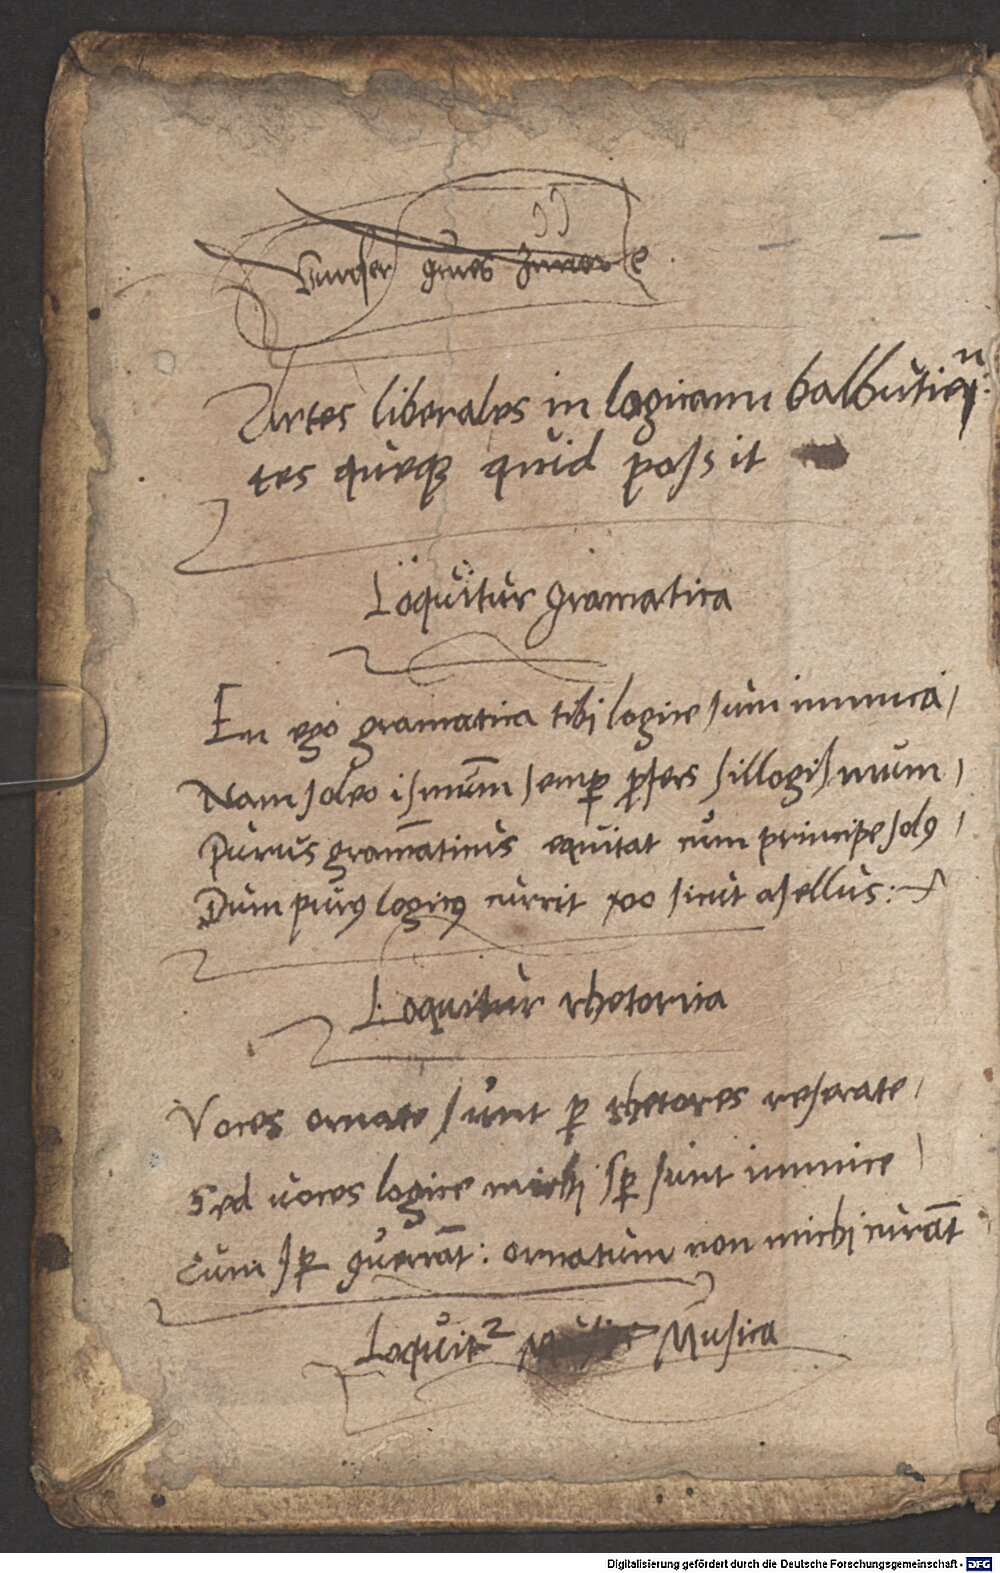 Artes liberales in logicam balbutien
tes queq quid possit
Loquitur gramatica
En ego gramatica tibi logice sum inimica
Nam soloeismum semp pfers sillogismum
Purus gramaticus equitat cum principe solus
Dum purus logicus currit sicut asellus
Loquitur rhetorica
Voces ornate sunt p rhetores reserate
Sed voces logice michi sp sunt inimice
Cum sp querrāt: ornatum non michi curāt
Loquit² Musica
Digitalisierung gefördert durch die Deutsche Forschungsgemeinschaft - DFG